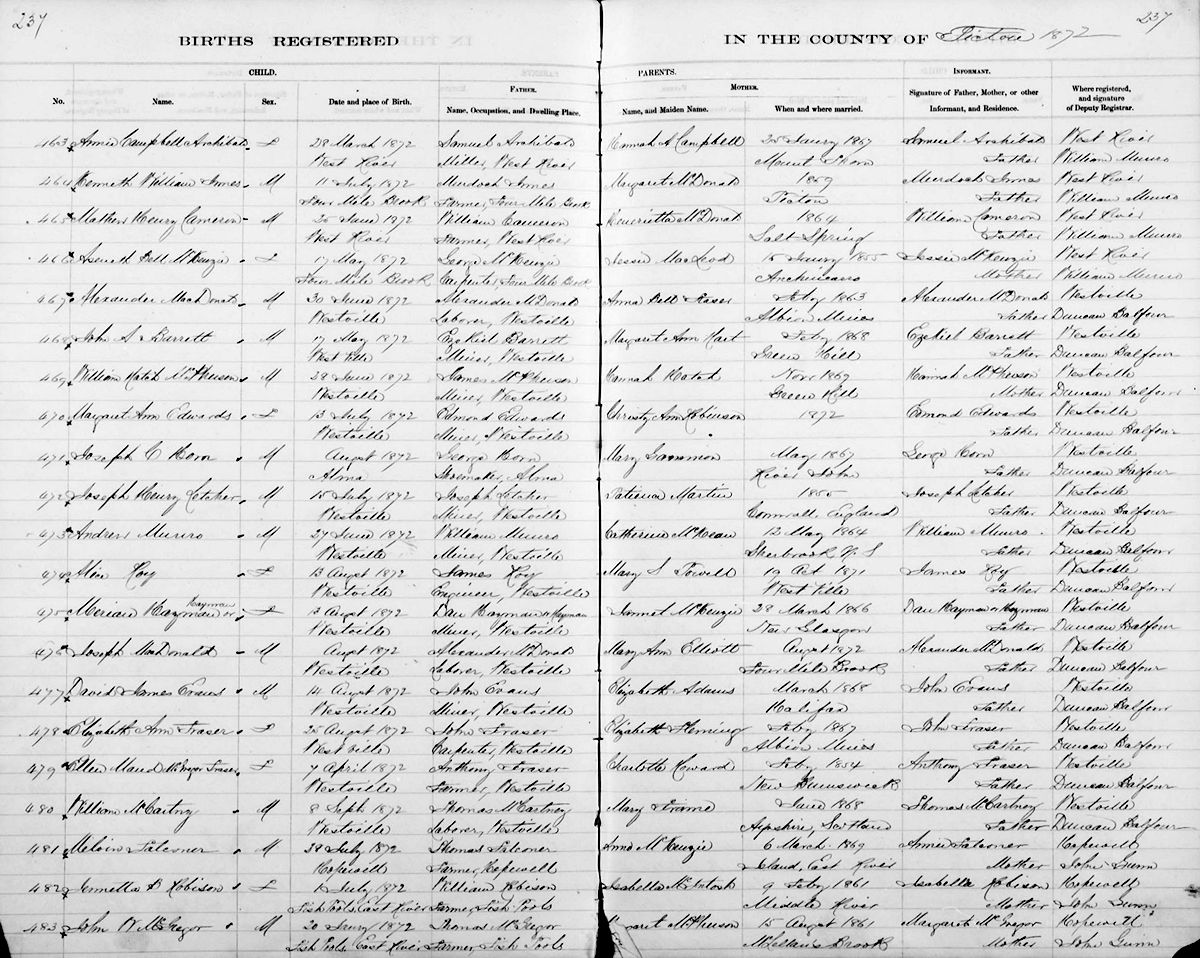 237
237
BIRTHS REGISTERED
IN THE COUNTY OF Pictou 1872
CHILD.
PARENTS.
INFORMANT.
No.
Name.
Sex.
Date and place of Birth.
FATHER.
Name, Occupation, and Dwelling Place.
MOTHER.
Name, and Maiden Name.
When and where married.
Signature of Father, Mother, or other
Informant, and Residence.
Where registered,
and signature
of Deputy Registrar.
463 Annie Campbell Archibald F 28 March 1872 Samuel Archibald Hannah A Campbell 25 1867 Samuel Archibald West River
West River Miller, West River Mount Thom Father William Munro
464 Kenneth William Innes M 11 July 1872 Murdoch Innes Margaret McDonald 1869 Murdoch Innes West River
Four Mile Brook Farmer, Four Mile Brook Pictou Father William Munro
465 Mathew Henry Cameron M 25 June 1872 William Cameron Henrietta McDonald 1864 William Cameron West River
West River Farmer, West River Salt Spring Father William Munro
466 Bell McKenzie F 17 May 1872 George McKenzie Jessie MacLeod 15 1855 Jessie McKenzie West River
Four Mile Brook Carpenter Four Mile Brook Mother William Munro
467 Alexander MacDonald M 30 June 1872 Alexander McDonald Anna Bell Fraser Feby 1863 Alexander McDonald Westville
Westville Laborer, Westville Albion Mines Father Duncan Balfour
468 John A Barrett M 17 May 1872 Ezekiel Barrett Margaret Ann Hart Feby 1868 Ezekiel Barrett Westville
West Ville Miner, Westville Green Hill Father Duncan Balfour
469 William Hatch McPherson M 28 June 1872 James McPherson Hannah Hatch Novr 1869 Hannah McPherson Westville
Westville Miner, Westville Green Hill Mother Duncan Balfour
470 Margaret Ann Edwards F 13 July 1872 Edmond Edwards Christy Ann Robinson 1872 Edmond Edwards Westville
Westville Miner, Westville Father Duncan Balfour
471 Joseph C Horn M August 1872 George Horn Mary Gammon May 1867 George Horn Westville
Alma Shoemaker, Alma River John Father Duncan Balfour
472 Joseph Henry Letcher M 15 July 1872 Joseph Letcher Martin 1855 Joseph Letcher Westville
Westville Miner, Westville Cornwall, England Father Duncan Balfour
473 Andrew Munro M 27 June 1872 William Munro Catherine McBean 12 May 1864 William Munro Westville
Westville Miner, Westville Sherbrook N S Father Duncan Balfour
474 Hoy F 13 Augst 1872 James Hoy Mary S 19 Oct 1871 James Hoy Westville
Westville Engineer, Westville West Ville Father Duncan Balfour
475 Miriam Hayman or Hayman F 13 Augst 1872 Dan Hayman or Heyman McKenzie 28 March 1866 Dan Hayman or Heyman Westville
Westville Miner, Westville New Glasgow Father Duncan Balfour
476 Joseph MacDonald M Augst 1872 Alexander McDonald Mary Ann Elliott August 1872 Alexander McDonald Westville
Westville Laborer, Westville Four Mile Brook Father Duncan Balfour
477 David James Evans M 14 August 1872 John Evans Elizabeth Adams March 1868 John Evans Westville
Westville Miner, Westville Halifax Father Duncan Balfour
478 Elizabeth Ann Fraser F 25 Augst 1872 John Fraser Elizabeth Fleming Feby 1867 John Fraser Westville
West ville Carpenter, Westville Albion Mines Father Duncan Balfour
479 Ellen Maud McGregor Fraser F 7 April 1872 Anthony Fraser Charlotte Howard Feby 1854 Anthony Fraser Westville
Westville Farmer, Westville New Brunswick Father Duncan Balfour
480 William McCartney M 8 Septr 1872 Thomas McCartney Mary Frame June 1868 Thomas McCartney Westville
Westville Laborer, Westville Ayrshire, Scotland Father Duncan Balfour
481 Melvin Falconer M 29 July 1872 Thomas Falconer Anna McKenzie 6 March 1869 Annie Falconer Hopewell
Hopewell Farmer, Hopewell Island, East River Mother John Gunn
482 B Robison F 1 July 1872 William Robison Isabella McIntosh 9 Feby 1861 Isabella Robison Hopewell
Fish Pools, East River Farmer, Fish Pools Middle River Mother John Gunn
483 John W McGregor M 20 1872 Thomas McGregor Margaret McPherson 15 August 1861 Margaret McGregor Hopewell
Fish Pools East River Farmer, Fish Pools McLellans Brook Mother John Gunn